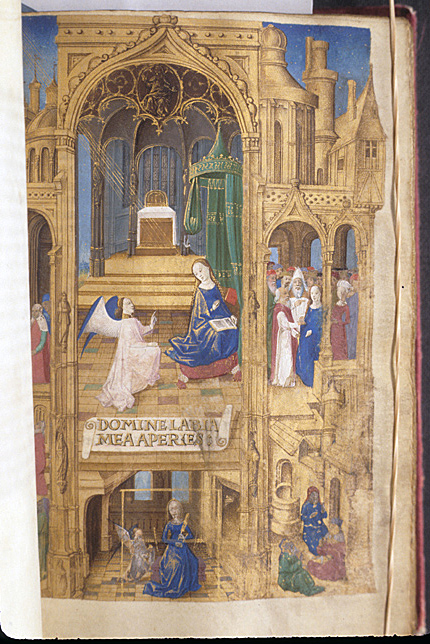 DOMINE LABIA
MEA APERIES